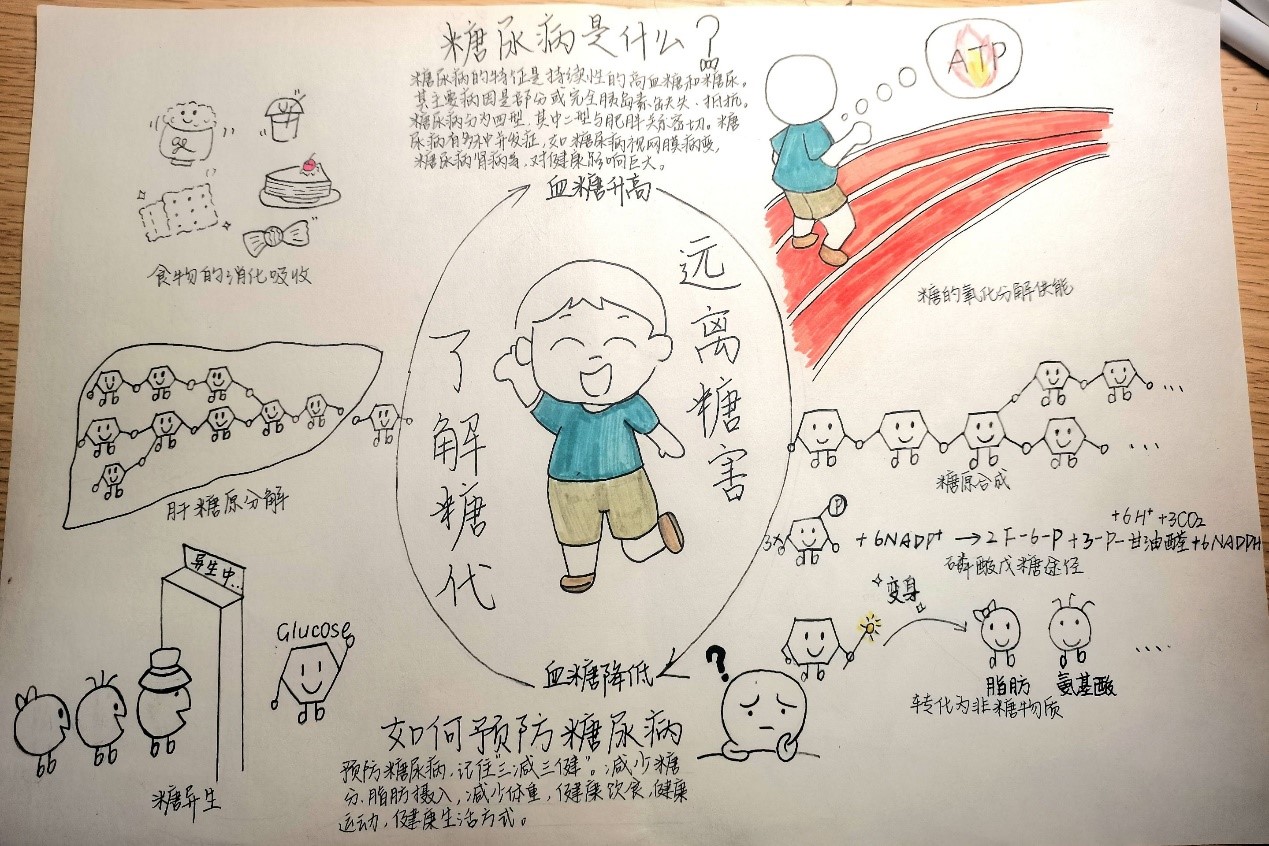 糖尿病是什么？
糖尿病的特征是持续性的高血糖和糖尿。
其主要病因是部分或完全胰岛素缺失、抵抗。
糖尿病分为四型，其中二型与肥胖关系密切。糖
尿病有多种并发症，如糖尿病视网膜病变，
糖尿病肾病等，对健康影响巨大。
血糖升高
ATP
食物的消化吸收
糖的氧化分解供能
远离糖害
了解糖代
肝糖原分解
糖原合成
3× P +6NADP+ →2F-6-P+3-P-甘油醛+6NADPH
+6H+ +3CO2
磷酸戊糖途径
异生中...
Glucose
糖异生
变身
脂肪
氨基酸
转化为非糖物质
血糖降低
?
如何预防糖尿病
预防糖尿病，记住"三减三健"。减少糖
分、脂肪摄入，减少体重，健康饮食，健康
运动，健康生活方式。